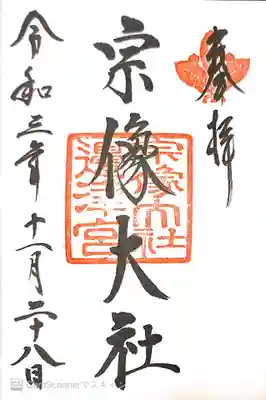 奉拝
宗像大社
宗像大社
邊津宮
令和三年十一月二十八日
CamScannerでスキャン